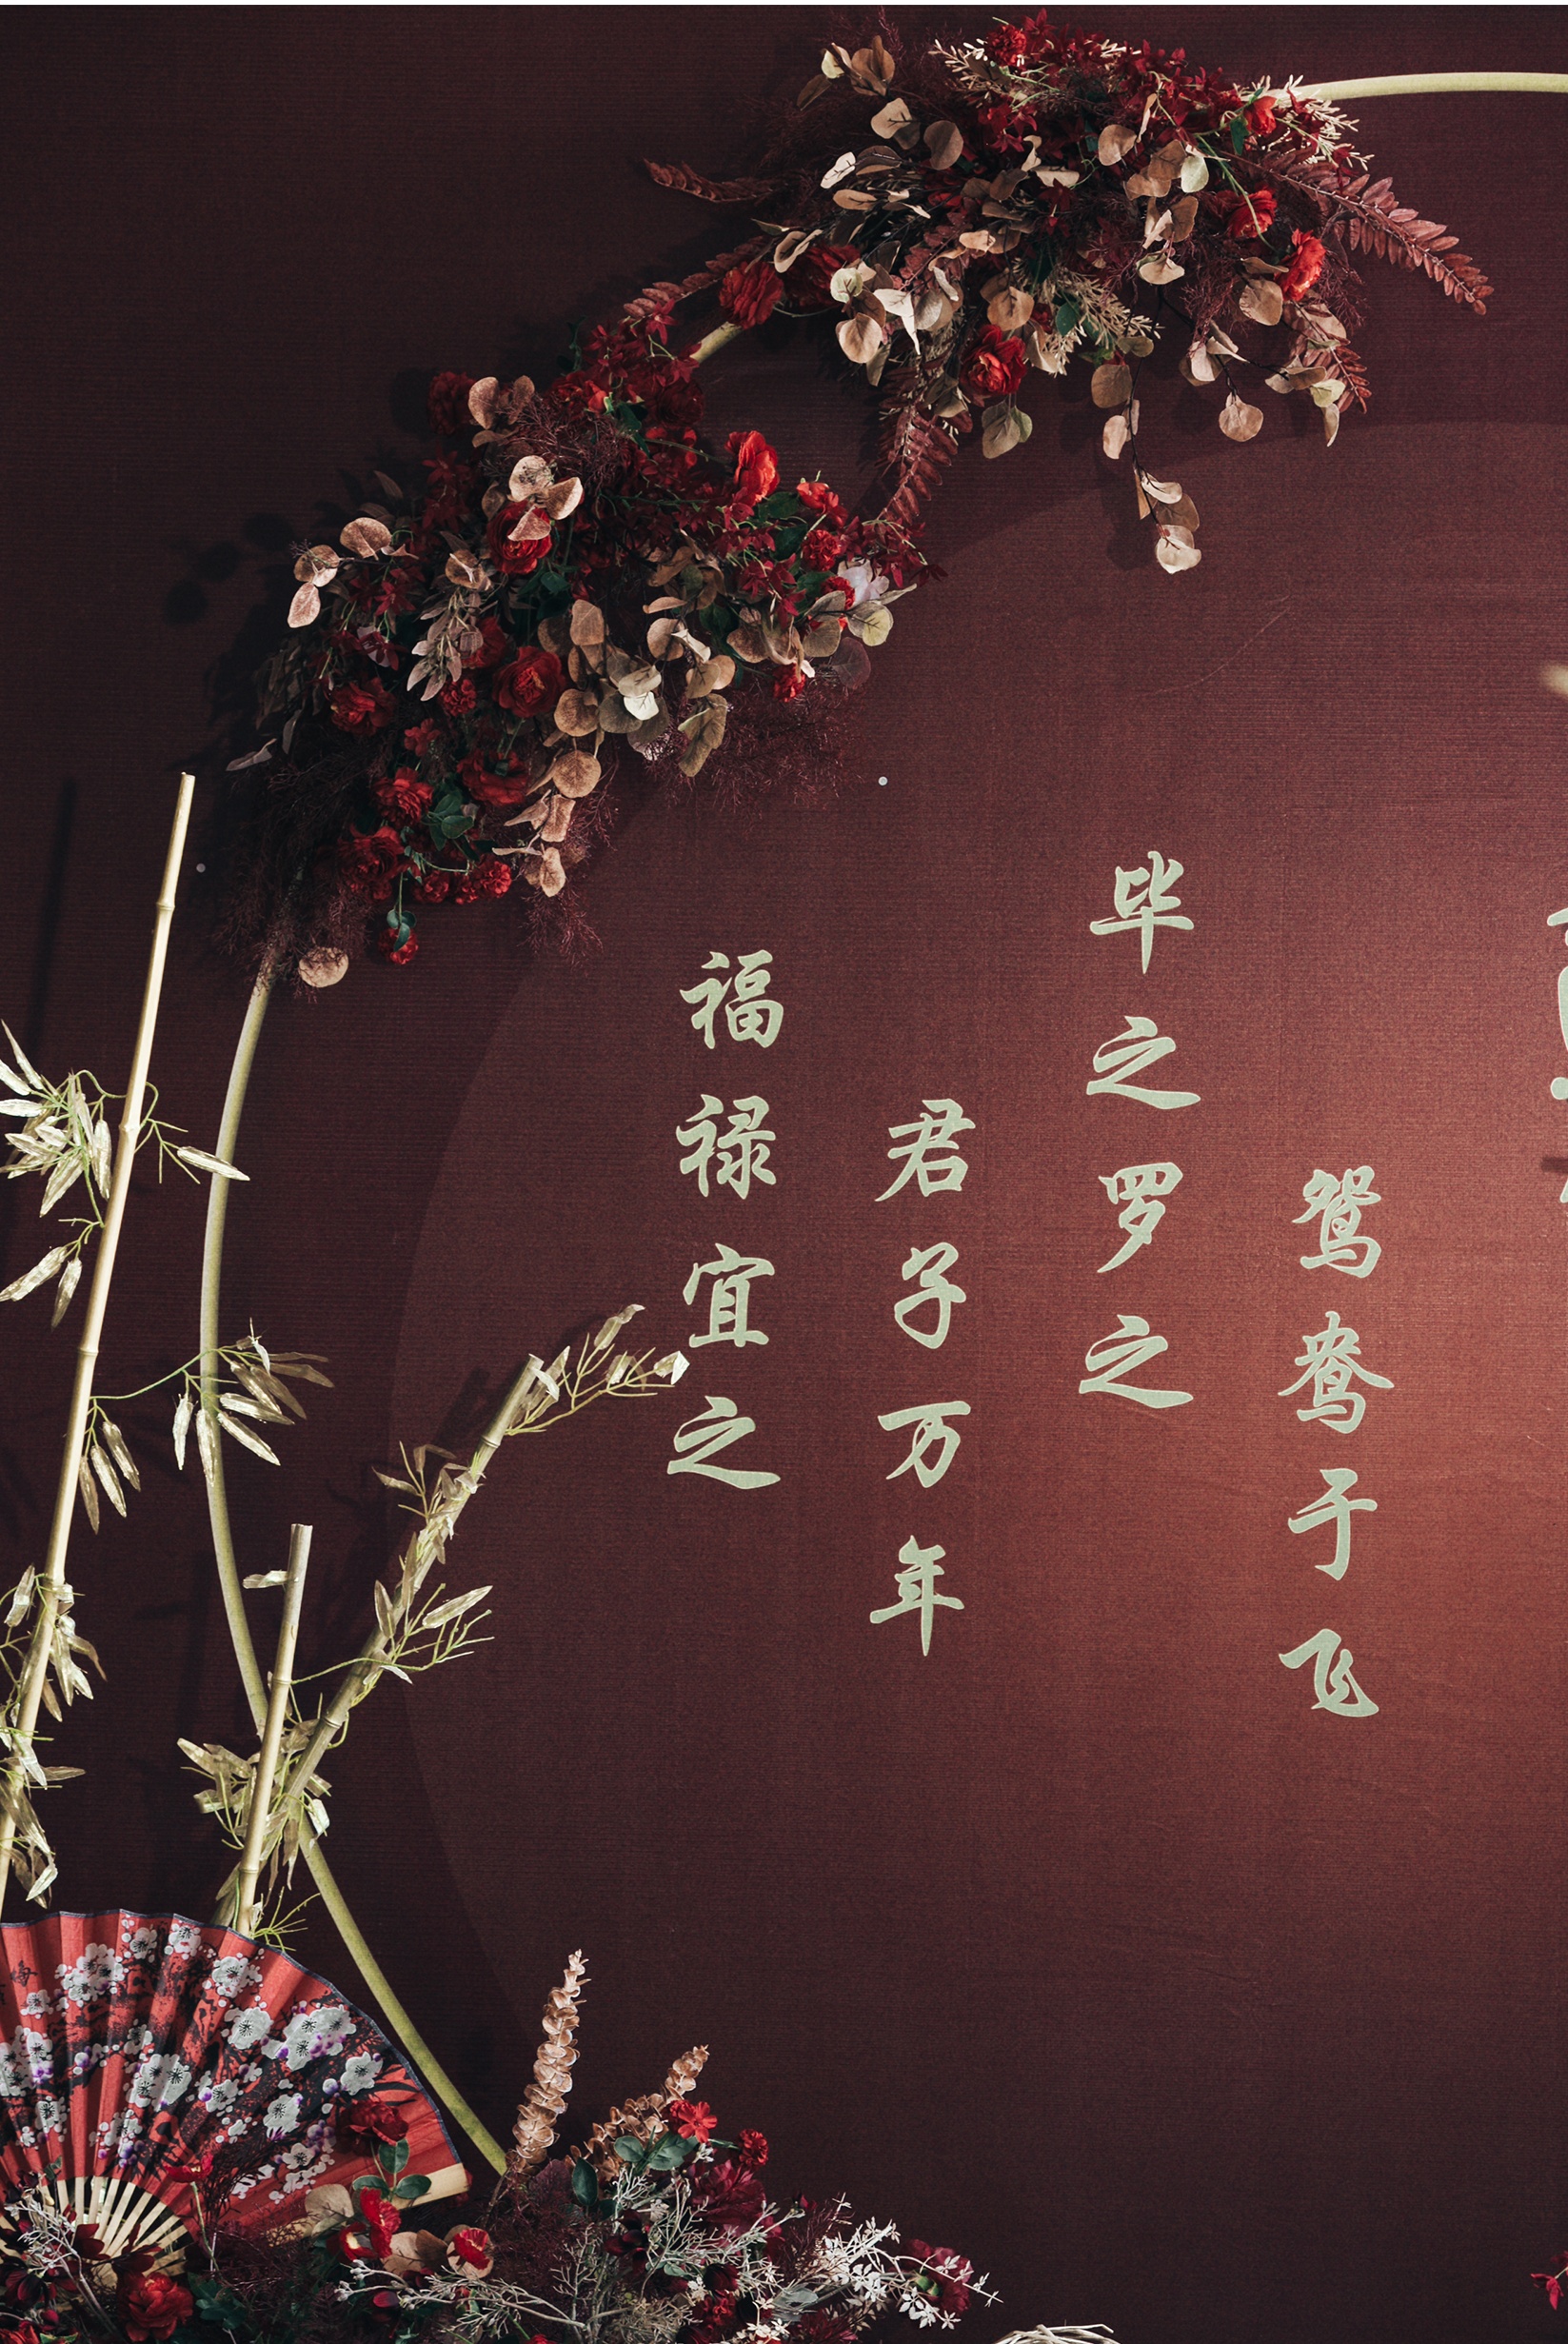 鸳鸯于飞
毕之罗之
君子万年
福禄宜之